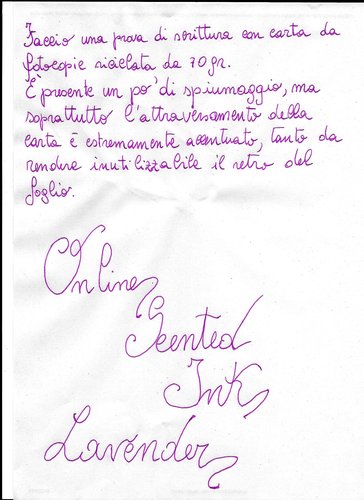 Faccio una prova di scrittura con carta da
fotocopie riciclata da 70 gr.
È presente un po' di spiumaggio, ma
soprattutto l'attraversamento della
carta è estremamente accentuato, tanto da
rendere inutilizzabile il retro del
foglio.
Online
Scented
Ink
Lavender